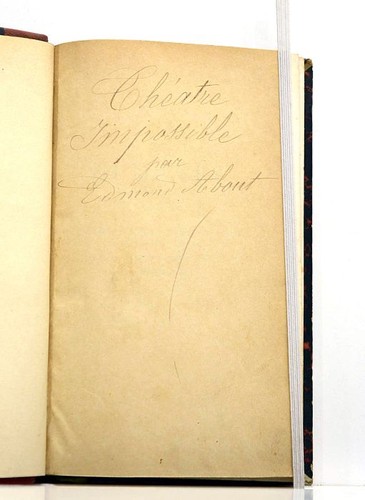 Théatre
Impossible
par
Edmond About